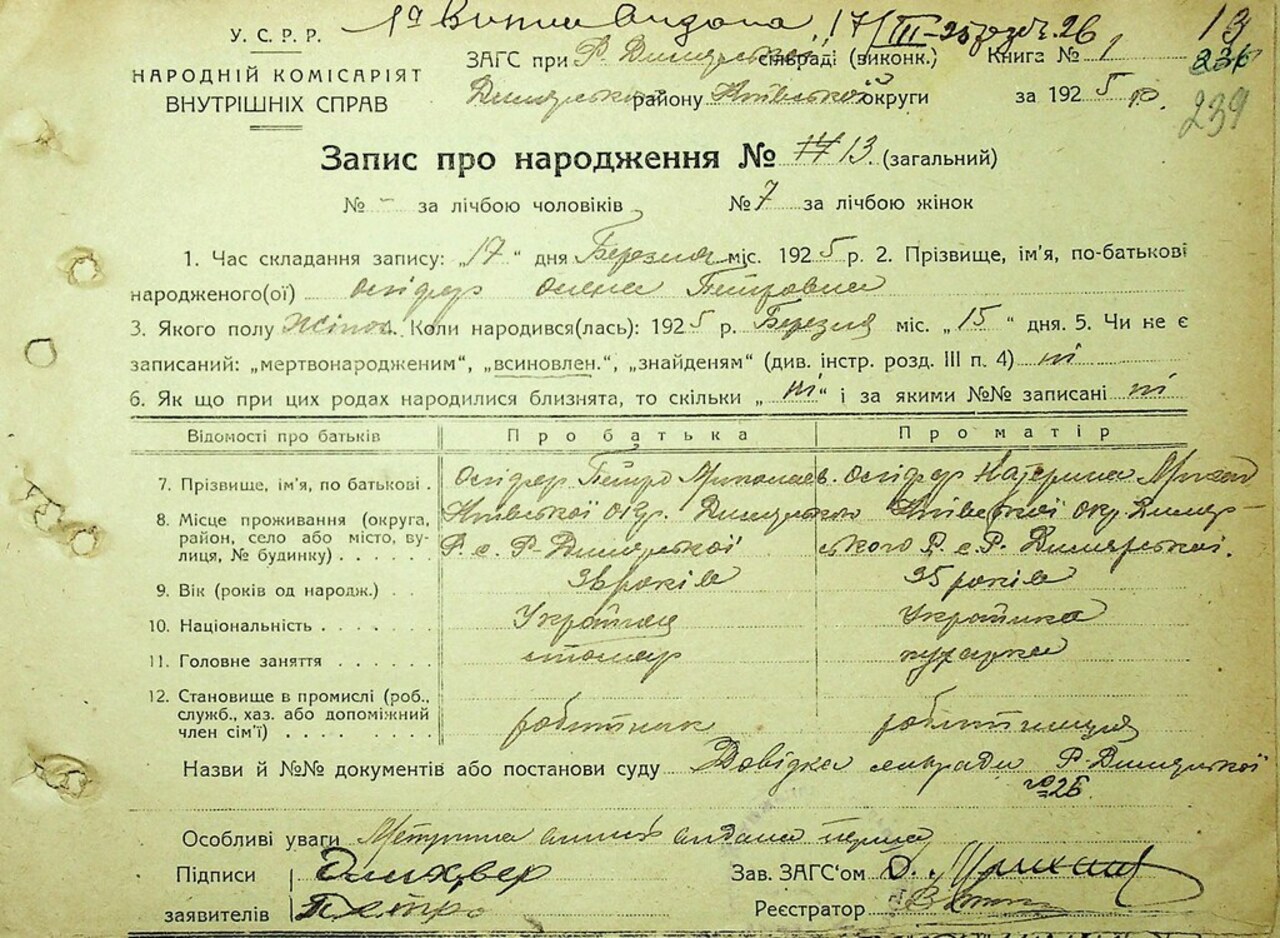 1а Витяг видана 17/III-25 р. за № 26
19
У.С.Р.Р.
НАРОДНІЙ КОМІСАРІЯТ
ВНУТРІШНІХ СПРАВ
ЗАГС при Р. Димерській сільраді (виконк.) Книга № 1
236
Димерський району Київської округи за 1925 р.
239
Запис про народження № 13 (загальний)
№ - за лічбою чоловіків № 7 за лічбою жінок
1. Час складання запису: „17“ дня Березня міс. 1925 р. 2. Прізвище, ім'я, по-батькові
народженого(ої) Олена Петровна
3. Якого полу Жіноч. 4. Коли народився(лась): 1925 р. Березня міс. „15“ дня. 5. Чи не є
записаний: „мертвонародженим“, „всиновлен.“, „знайденям“ (див. інстр. розд. III п. 4) ні
6. Як що при цих родах народилися близнята, то скільки „ні“ і за якими №№ записані ні
Відомості про батьків Про батька Про матір
7. Прізвище, ім'я, по батькові . Петро Миколаєв. Катерина Михай
8. Місце проживання (округа, район, село або місто, вулиця, № будинку) . . . . Київської окр. Димерського Київської окр. Димер-
Р. с. Р-Димерської ського Р. с. Р. Димерської.
9. Вік (років од народж.) . . 36 років 35 років
10. Національність . . . . . Українец Українка
11. Головне заняття . . . . . столяр кухарка
12. Становище в промислі (роб., служб., хаз. або допоміжний член сім'ї) . . . . . . . робітник робітниця
Назви й №№ документів або постанови суду Довідка сільради Р-Димерської
№ 26.
Особливі уваги Метрична видана перша
Підписи Зав. ЗАГС'ом
заявителів Петро Реєстратор